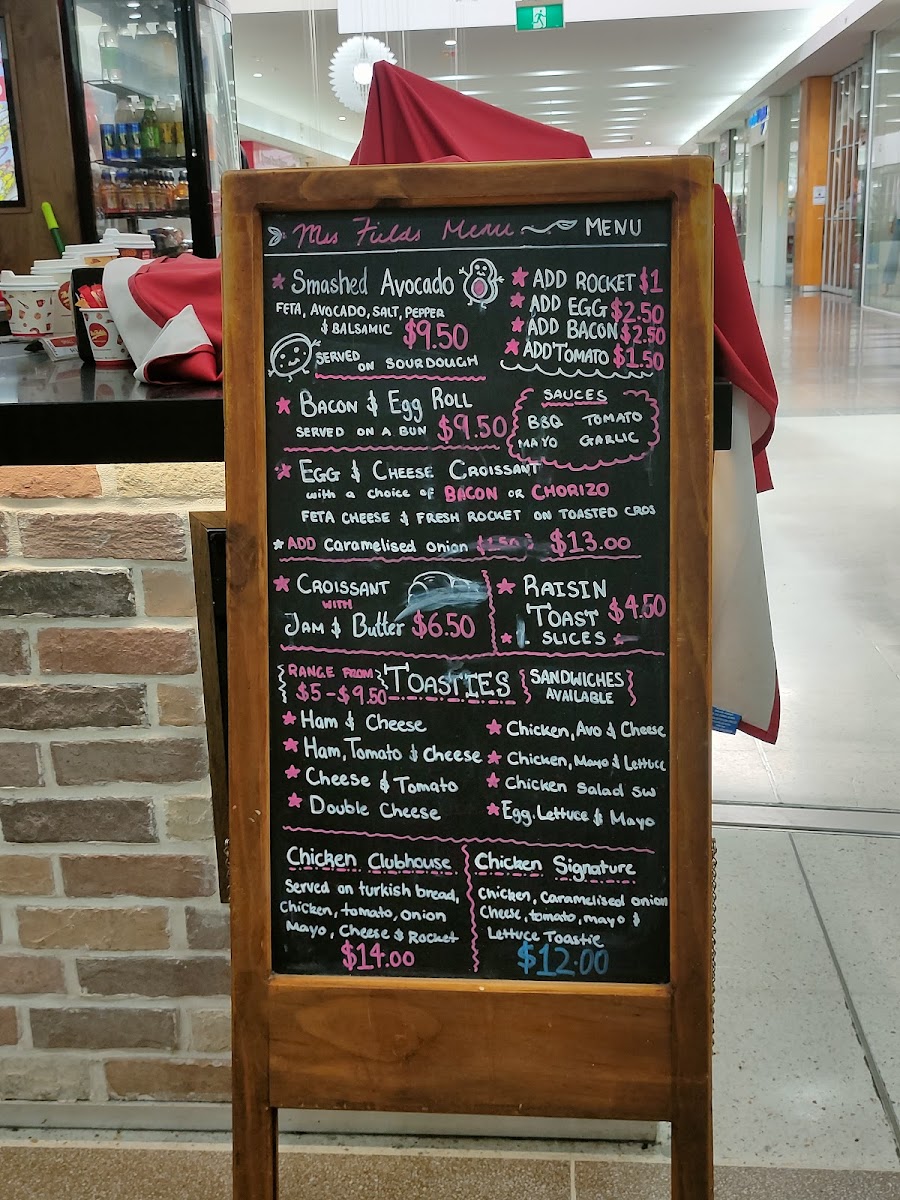 Mrs Fields Menu MENU
Smashed Avocado
FETA, AVOCADO, SALT, PEPPER
& BALSAMIC $9.50
SERVED ON SOURDOUGH
ADD ROCKET $1
ADD EGG $2.50
ADD BACON $2.50
ADD TOMATO $1.50
BACON & Egg ROLL
SERVED ON A BUN $9.50
SAUCES
BBQ TOMATO
MAYO GARLIC
EGG & CHEESE CROISSANT
with a choice of BACON OR CHORIZO
FETA CHEESE & FRESH ROCKET ON TOASTED CROS
ADD Caramelised onion $1.50 $13.00
CROISSANT
WITH
JAM & Butter $6.50
RAISIN
TOAST $4.50
SLICES
RANGE FROM
$5-$9.50
TOASTIES
SANDWICHES
AVAILABLE
Ham & Cheese
Ham, Tomato & Cheese
Cheese & Tomato
Double Cheese
Chicken, Avo & Cheese
Chicken, Mayo & Lettuce
Chicken Salad SW
Egg, Lettuce & Mayo
Chicken Clubhouse
Served on turkish bread,
Chicken, tomato, onion
Mayo, Cheese & Rocket
$14.00
Chicken Signature
Chicken, caramelised onion
Cheese, tomato, mayo &
Lettuce Toastie
$12.00